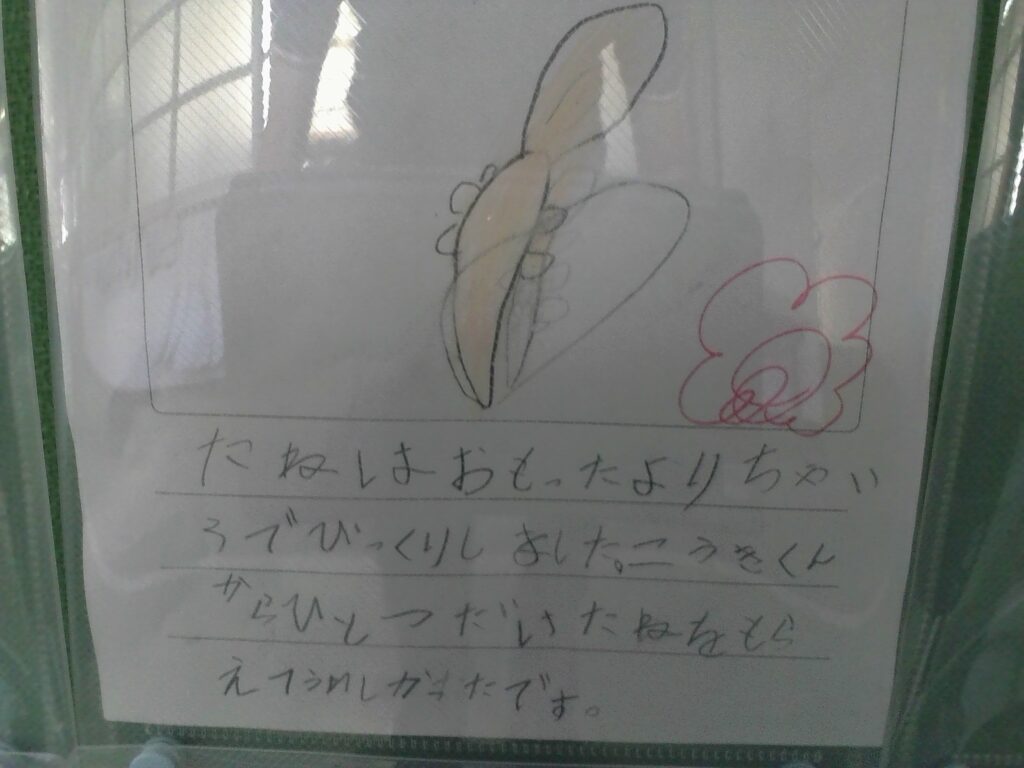 たねはおもったよりちゃい
ろでびっくりしました。こうきくん
からひとつだけたねをもら
えてうれしかったです。